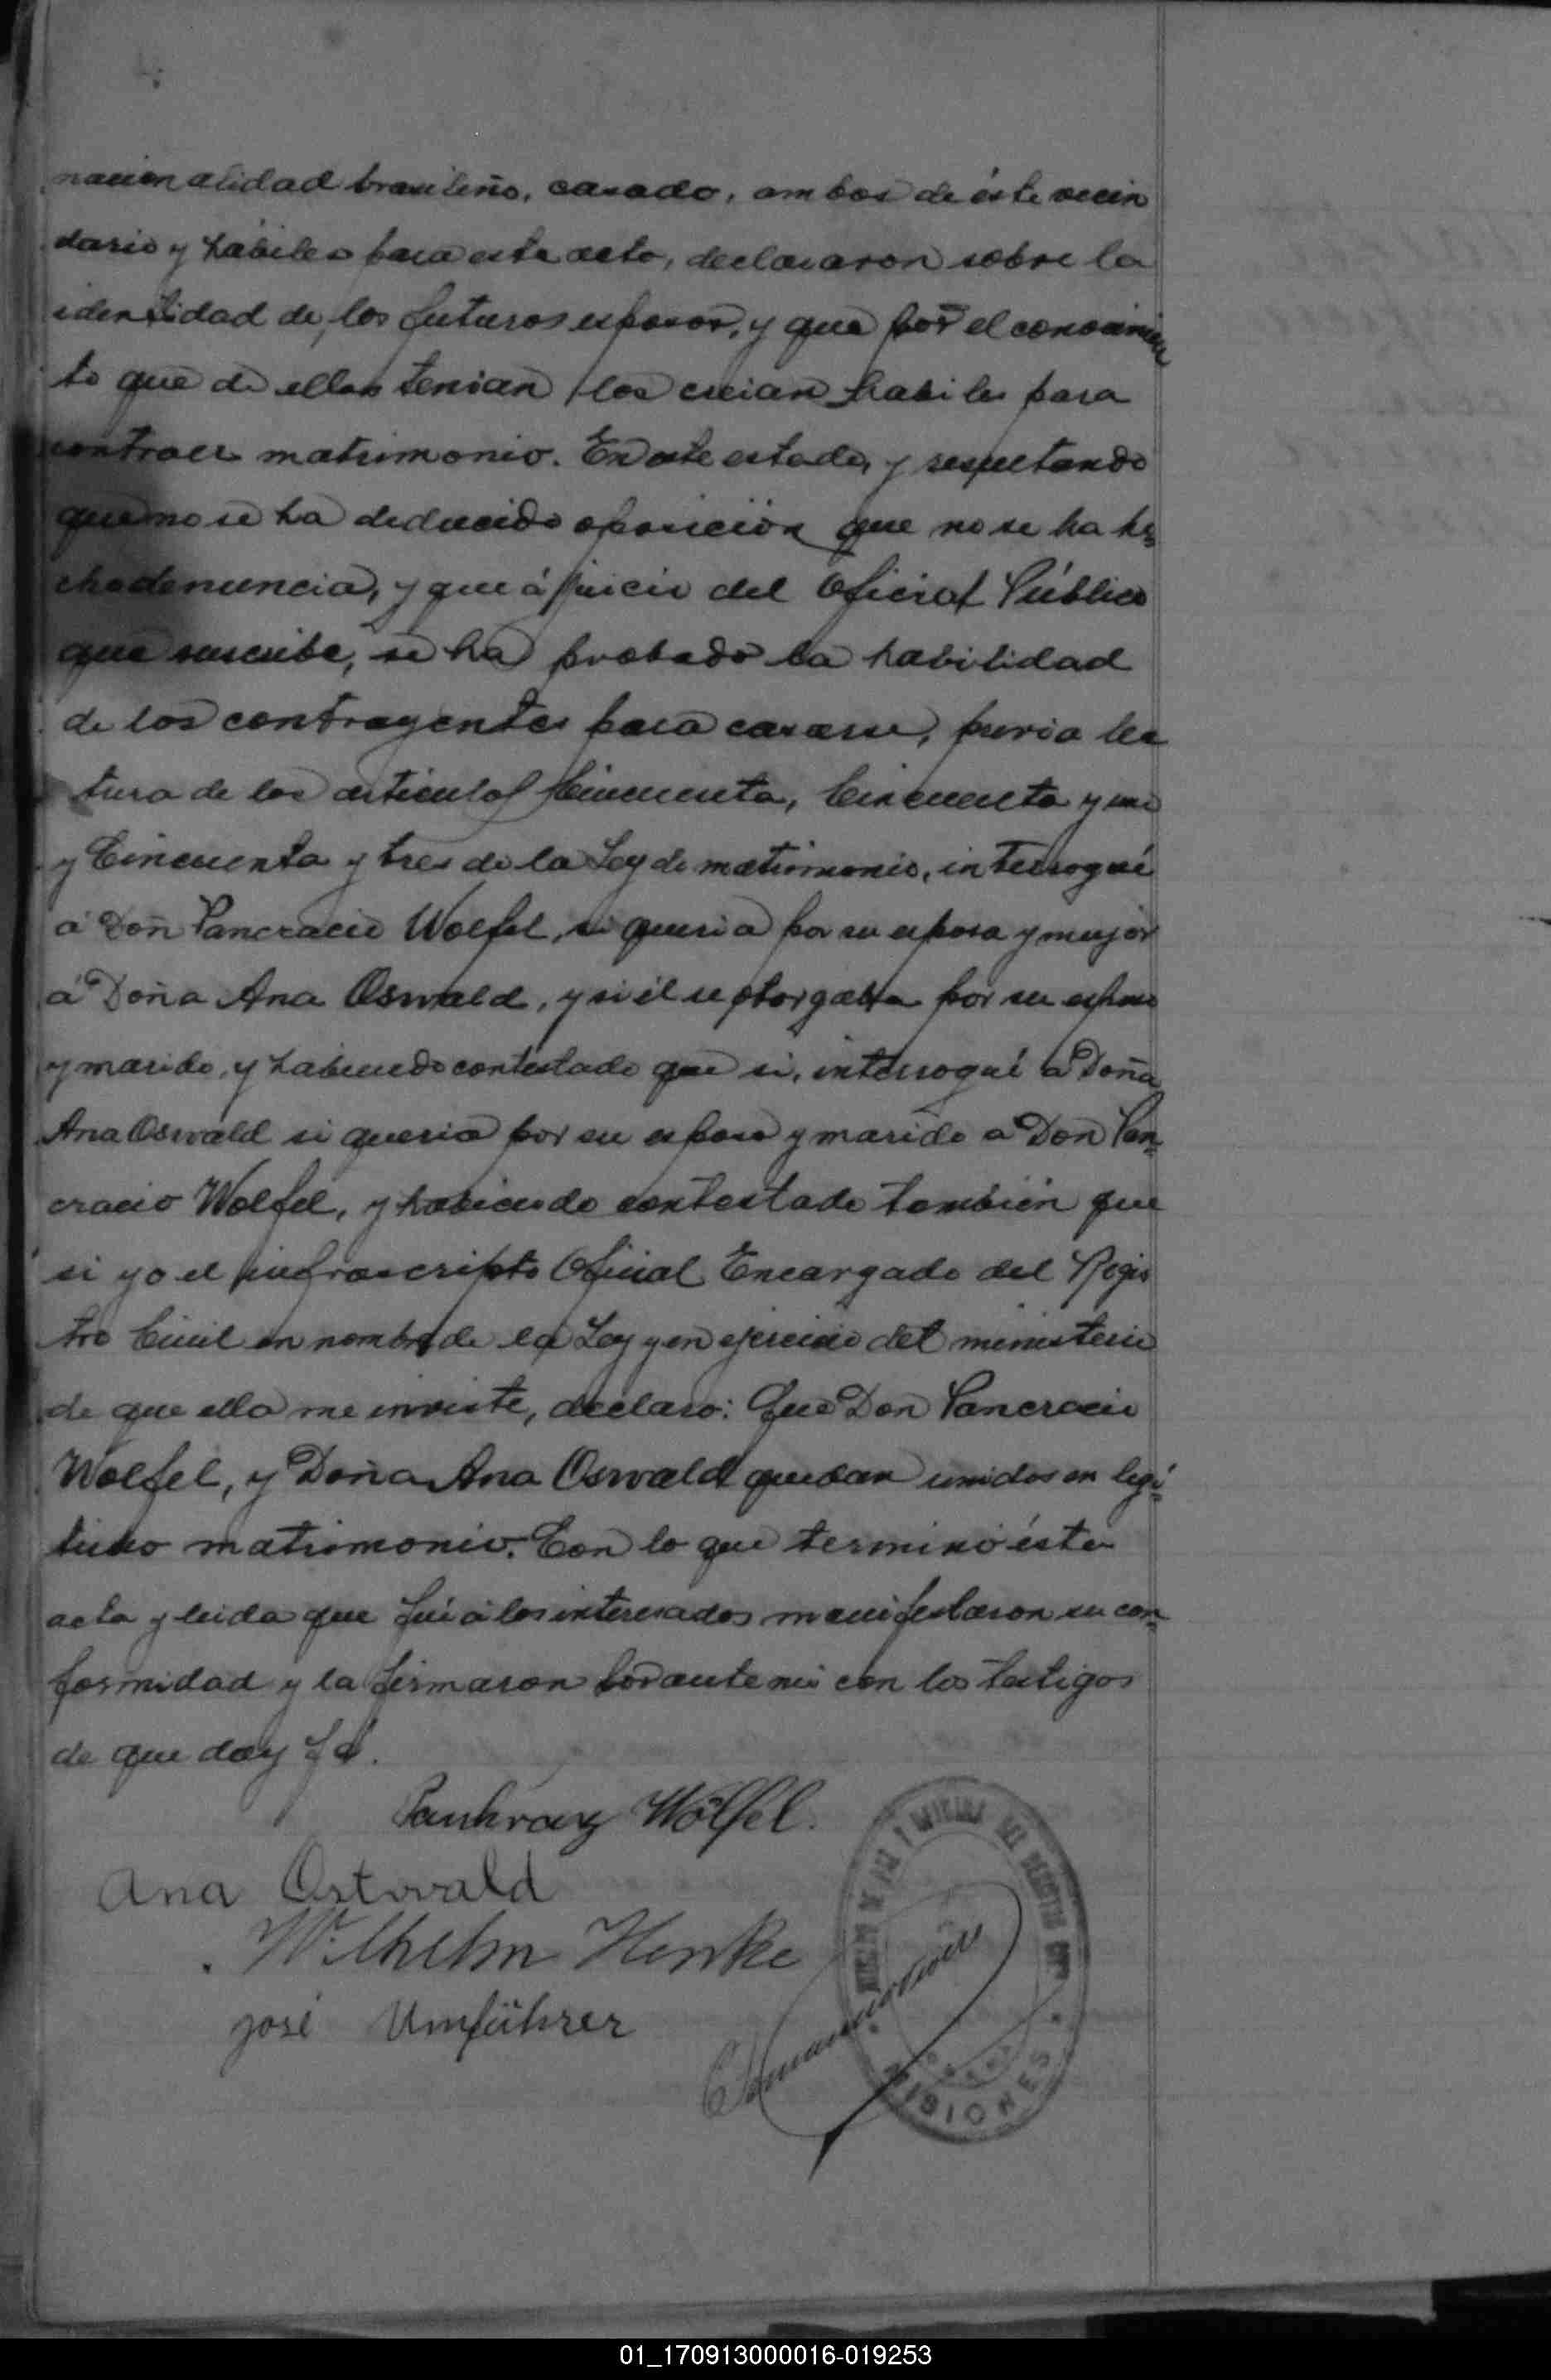 nacionalidad brasileño, casado, ambos de éste vecin
dario y hábiles para este acto, declararon sobre la
identidad de los futuros esposos, y que por el conocimien
to que de ellos tenian los creian habiles para
contraer matrimonio. En este estado, y respetando
que no se ha deducido oposición que no se ha he=
cho denuncia, y que á juicio del Oficial Público
que suscribe, se ha probado la habilidad
de los contrayentes para casarse, previa lec
tura de los articulos Cincuenta, Cincuenta y uno
y Cincuenta y tres de la Ley de matrimonio, interrogué
á Don Pancracio Wolfel, si queria por su esposa y mujer
á Doña Ana Oswald, y si él se otorgaba por su esposo
y marido, y habiendo contestado que si, interrogué a Doña
Ana Oswald si queria por su esposo y marido a Don Pan=
cracio Wolfel, y habiendo contestado también que
si yo el infrascripto Oficial Encargado del Regis
tro Civil en nombre de la Ley y en ejercicio del ministerio
de que ella me inviste, declaro: Que Don Pancracio
Wolfel, y Doña Ana Oswald quedan unidos en legi=
timo matrimonio. Con lo que terminó ésta
acta y leida que fué á los interesados manifestaron su con=
formidad y la firmaron por ante mi con los testigos
de que doy fé.
Pankraz Wölfel.
Ana Ostwald
Wilhelm Henke
José Umführer
JUZGADO DE PAZ Y OFICINA DEL REGISTRO CIVIL
MISIONES
01_170913000016-019253